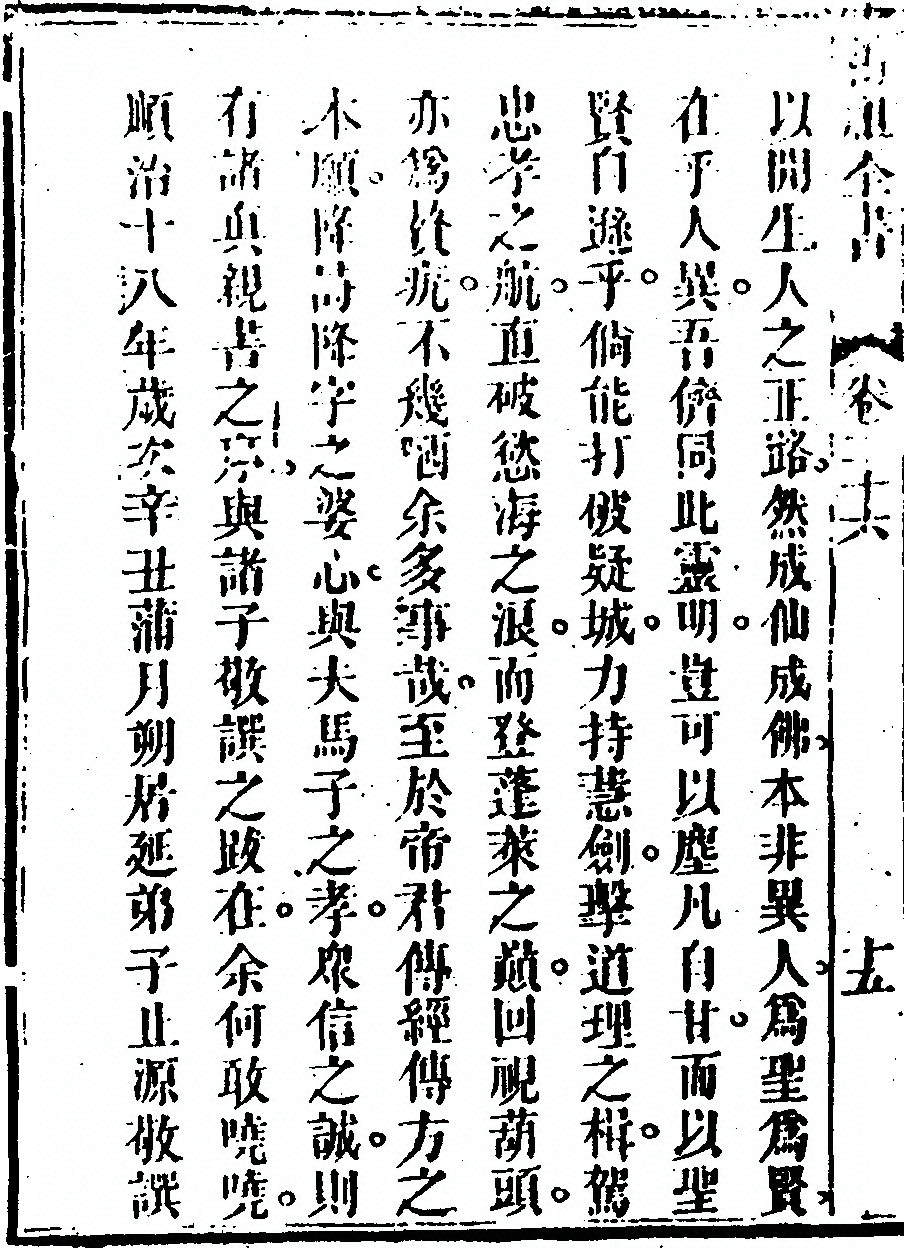 呂祖全書 卷二十六 十五
以開生人之正路然成仙成佛本非異人爲聖爲賢
在乎人異吾儕同此靈明豈可以塵凡自甘而以聖
賢自遜乎倘能打破疑城力持慧劍擊道理之楫駕
忠孝之航直破慾海之浪而登蓬萊之巔回視葫頭
亦爲贅疣不幾哂余多事哉至於帝君傳經傳方之
本願降詩降字之婆心與夫馬子之孝衆信之誠則
有諸與親書之序與諸子敬譔之跋在余何敢嘵嘵
順治十八年歲次辛丑蒲月朔居延弟子止源敬譔